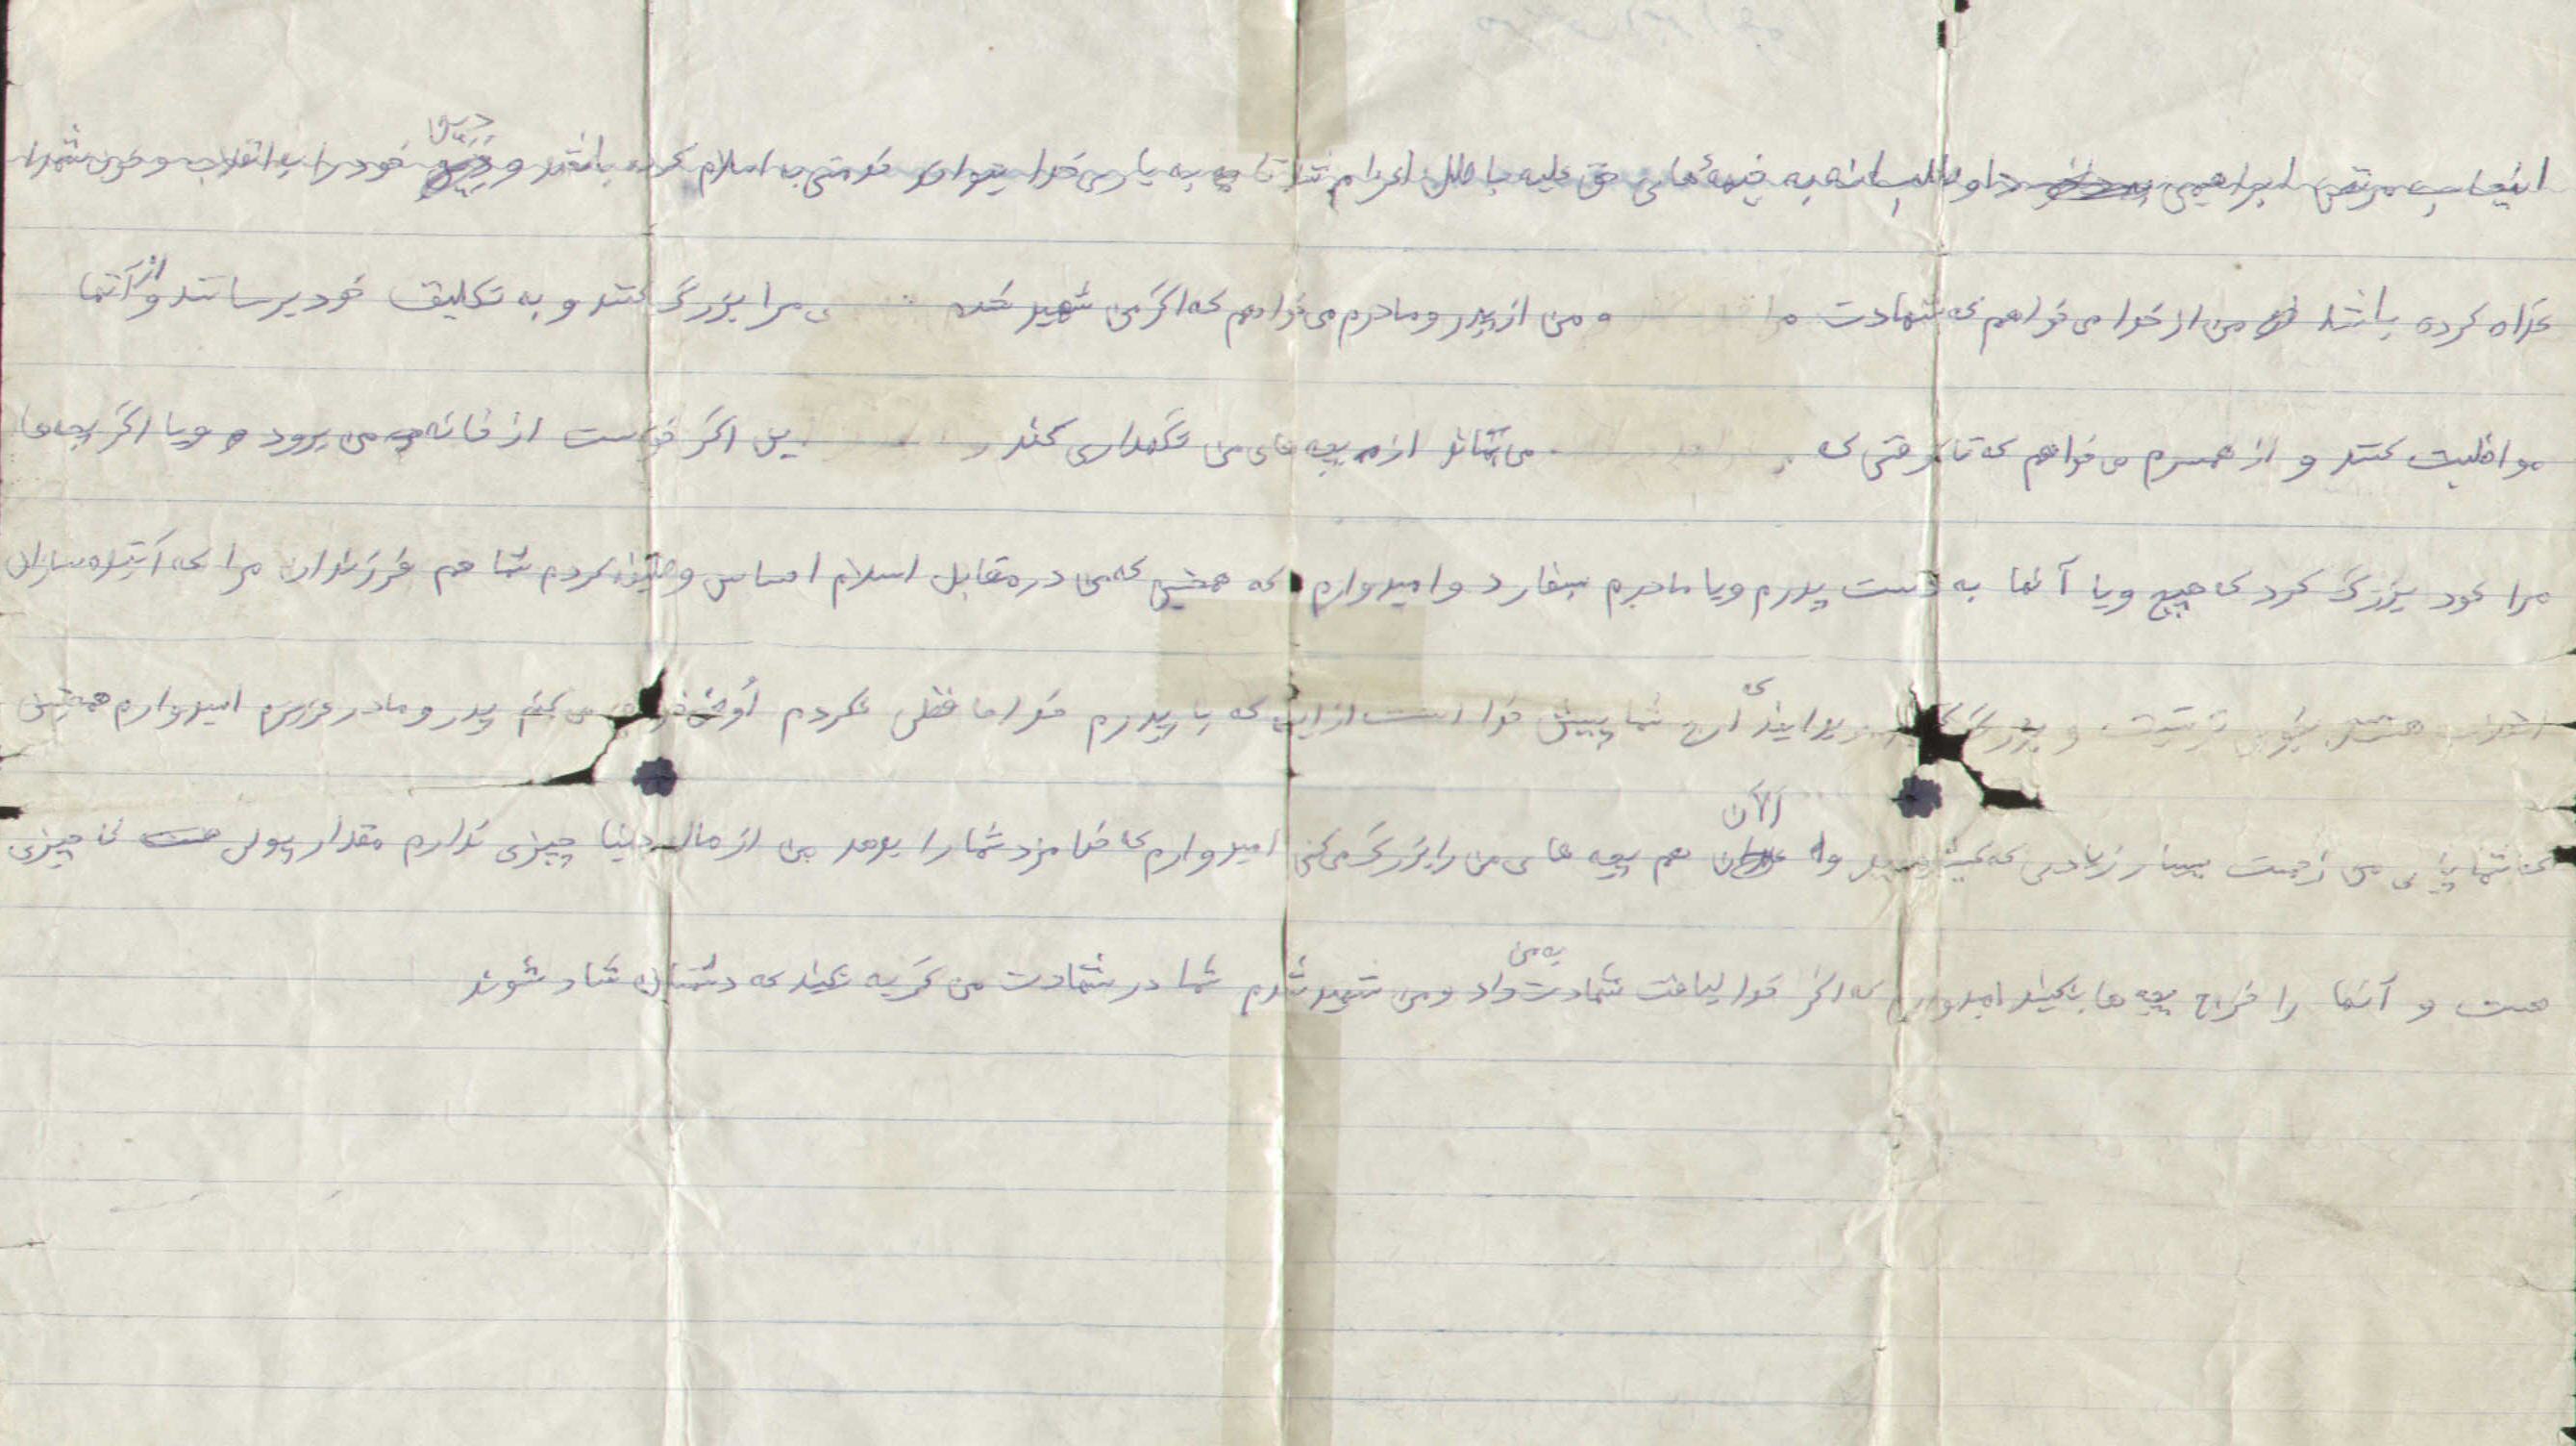 اینجانب مرتضی ابراهیمی داوطلبانه به جبهه‌های حق علیه باطل اعزام شدم تا به یاری خدا بتوانم خدمتی به اسلام کرده باشم و دین خود را به انقلاب و خون شهدا
اداه کرده باشم من از خدا می خواهم که شهادت مرا و من از پدر و مادرم می خواهم که اگر من شهید شدم ی مرا بزرگ کنند و به تکلیف خود برسانند و از آنها
مواظبت کنند و از همسرم می خواهم که تا وقتی که می تواند از بچه های من نگهداری کند اگر خواست از خانه من برود و یا اگر بچه ها
مرا خود بزرگ کرد که هیچ و یا آنها به دست پدرم و یا مادرم بسپارد و امیدوارم که همنین که من در مقابل اسلام احساس وظیفه کردم شما هم فرزندان مرا که آینده سازان
هستند تربیت و بزرگ اجر شما پیش خدا است از این که با پدرم خداحافظی نکردم می کنم پدر و مادر عزیزم امیدوارم همچنین
که شما برای من زحمت بسیار زیادی که کشیدید و الآن هم بچه های من را بزرگ می کنی امیدوارم که خدا مزد شما را بدهد من از مال دنیا چیزی ندارم مقدار پولی نا چیزی
هست و آنها را خرج بچه ها بکنید امیدوارم که اگر خدا لیاقت شهادت به من داد و من شهید شدم شما در شهادت من گریه نکنید که دشمنان شاد شوند